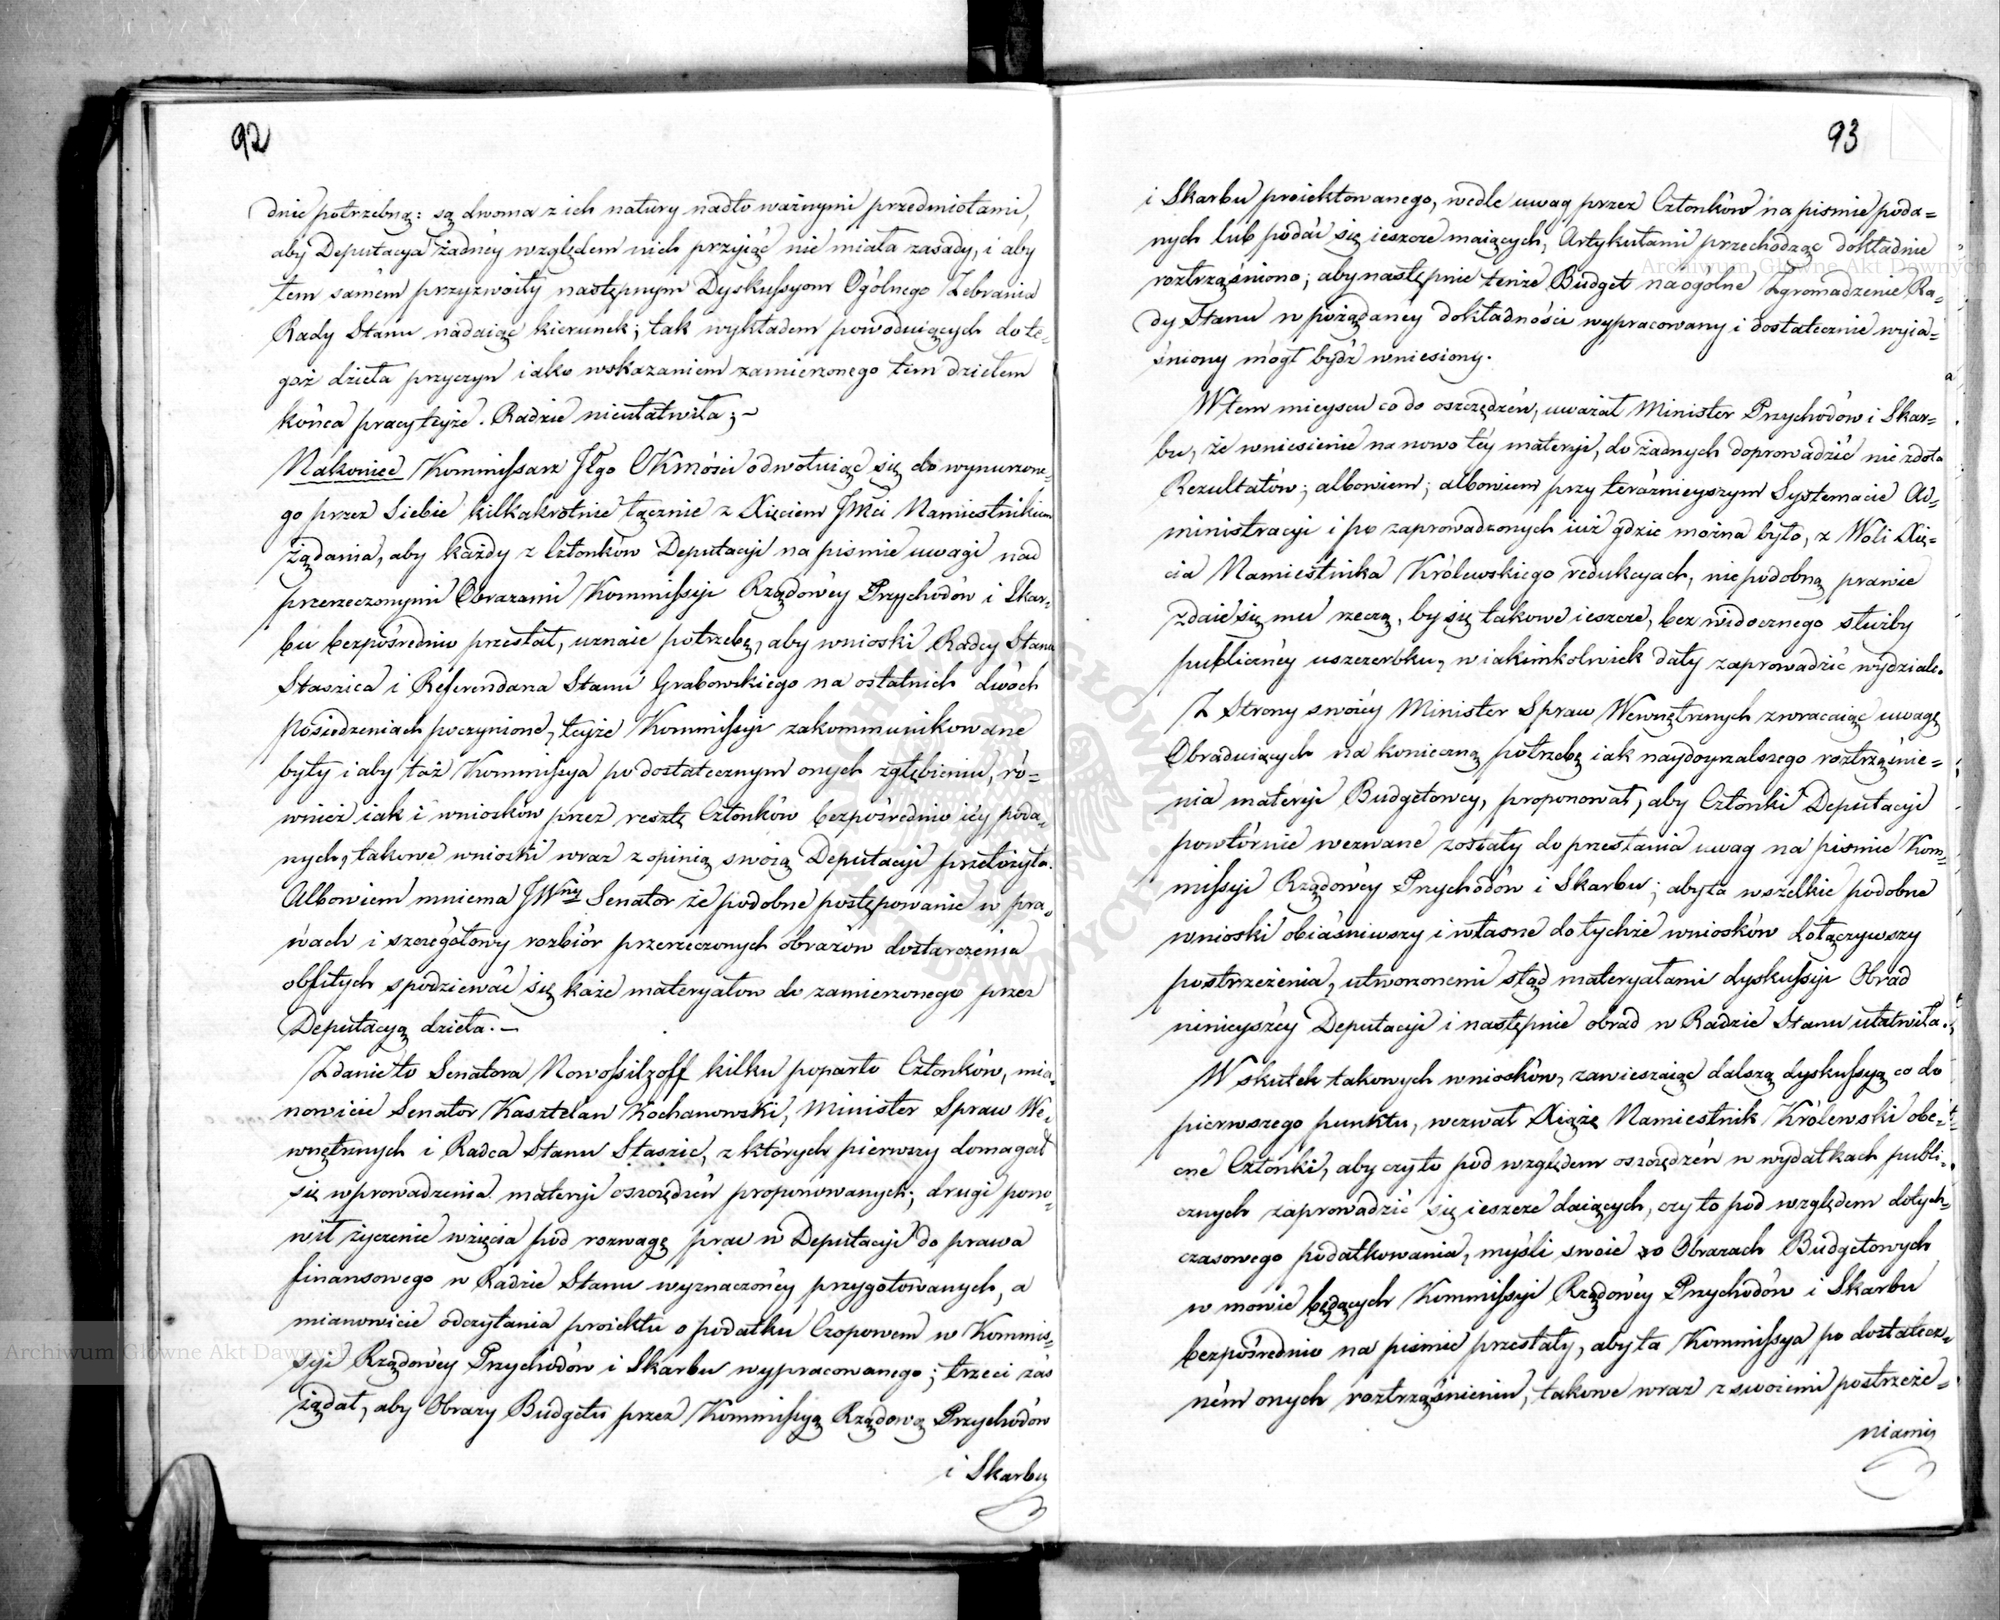 92
dnie potrzebną: są dwoma z ich natury nadto ważnymi przedmiotami,
aby Deputacya żadnéy względem nich przyiąć nie miała zasady, i aby
tem samém przyzwoity następnym Dyskussyom Ogólnego Zebrania
Rady Stanu nadaiąc kierunek; tak wykładem powoduiących do te-
goż dzieła przyczyn iako wskazaniem zamierzonego tém dziełem
końca pracy teyże Radzie nieułatwiła;~
Nakoniec Kommissarz JCgo Kmości odwołuiąc się do wynurzone-
go przez Siebie kilkakrotnie łącznie z Xięciem JMci Namiestnikiem
żądania, aby każdy z Członków Deputacyi na pismie uwagi nad
przerzeczonymi Obrazami Kommissyi Rządowéy Przychodów i Skar-
bu bezpośrednio przesłał, uznaie potrzebę, aby wnioski Radcy Stanu
Staszica i Referendarza Stanu Grabowskiego na ostatnich dwóch
Posiedzeniach poczynione, teyże Kommissyi zakommunikowane
były i aby taż Kommissya po dostatecznym onych zgłębieniu, ró=
wnież iak i wniosków przez resztę Członków bezpośrednio iéy poda-
nych, takowe wnioski wraz z opinią swoią Deputacyi przełożyła.
Albowiem mniema JWny Senator że podobne postępowanie w pra-
wach i szczegółowy rozbiór przerzeczonych obrazów dostarczenia
obfitych spodziewać się każe materyałow do zamierzonego przez
Deputacyą dzieła.—
Zdanie to Senatora Nowossilzoff kilku poparło Członków, mia-
nowicie Senator Kasztelan Kochanowski, Minister Spraw We-
wnętrznych i Radca Stanu Staszic, z których pierwszy domagał
się wprowadzenia materyi oszczędzeń proponowanych; drugi pono-
wił życzenie wzięcia pod rozwagę prac w Deputacyi do prawa
finansowego w Radzie Stanu wyznaczonéy przygotowanych, a
mianowicie odczytania proiektu o podatku Czopowem w Kommis-
syi Rządowéy Przychodów i Skarbu wypracowanego; trzeci zaś
żądał, aby Obrazy Budgetu przez Kommissyą Rządową Przychodów
i Skarbu
93
i Skarbu proiektowanego, wedle uwag przez Członków na pismie poda=
nych lub podać się ieszcze maiących, Artykułami przechodząc dokładnie
roztrząśniono; aby następnie tenże Budget na ogolne Zgromadzenie Ra-
dy Stanu w pożądanéy dokładności wypracowany i dostatecznie wyia-
śniony mógł bydź wniesiony.
W tem mieyscu co do oszczędzéń, uważał Minister Przychodów i Skar-
bu, że wniesienie na nowo téy materyi, do żadnych doprowadzić nie zdoła
Rezultatów; albowiem; albowiem przy teraźnieyszym Systemacie Ad-
ministracyi i po zaprowadzonych iuż gdzie można było, z Woli Xię-
cia Namiestnika Królewskiego redukcyach, niepodobną prawie
zdaie się mu rzeczą, by się takowe ieszcze, bez widocznego służby
publicznéy uszczerbku, w iakimkolwiek dały zaprowadzić wydziale.
Z Strony swoiéy Minister Spraw Wewnętrznych zwracaiąc uwagę
Obraduiących na konieczną potrzebę iak naydoyrzalszego roztrząśnie=
nia materyi Budgetowey, proponował, aby Członki Deputacyi
powtórnie wezwane zostały do przesłania uwag na pismie Kom-
missyi Rządowéy Przychodów i Skarbu; aby ta wszelkie podobne
wnioski obiaśniwszy i własne do tychże wniosków dołączywszy
postrzeżenia, utworzonemi stąd materyałami dyskussyi Obrad
ninieyszéy Deputacyi i następnie obrad w Radzie Stanu ułatwiła.
W skutek takowych wniosków, zawieszaiąc dalszą dyskussyą co do
pierwszego punktu, wezwał Xiążę Namiestnik Królewski obe-
cne Członki, aby czy to pod względem oszczędzéń w wydatkach publi-
cznych zaprowadzić się ieszcze daiących, czy to pod względem dotych-
czasowego podatkowania, myśli swoie o Obrazach Budgetowych
w mowie będących Kommissyi Rządowéy Przychodów i Skarbu
bezpośrednio na pismie przesłały, aby ta Kommissya po dostatecz-
ném onych roztrząśnieniu, takowe wraz z swoiemi postrzeże-
niami
Archiwum Główne Akt Dawnych
Archiwum Główne Akt Dawnych